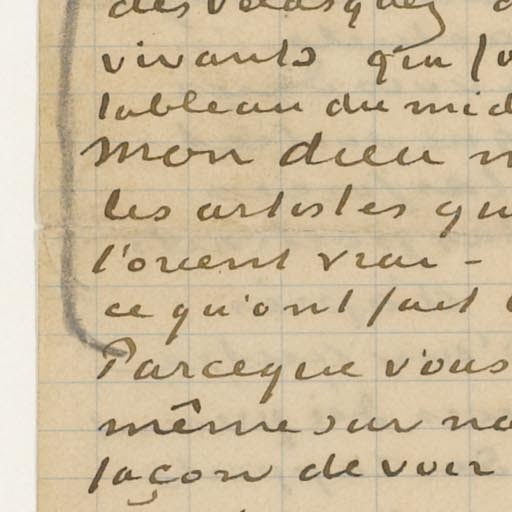 des Velasquez
vivants qui
tableau du
Mon dieu
les artistes
l'orient vrai -
ce qu'ont fait
Parceque vous
même sur
façon de voir